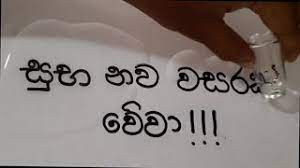 සුභ නව වසරක්
වේවා !!!